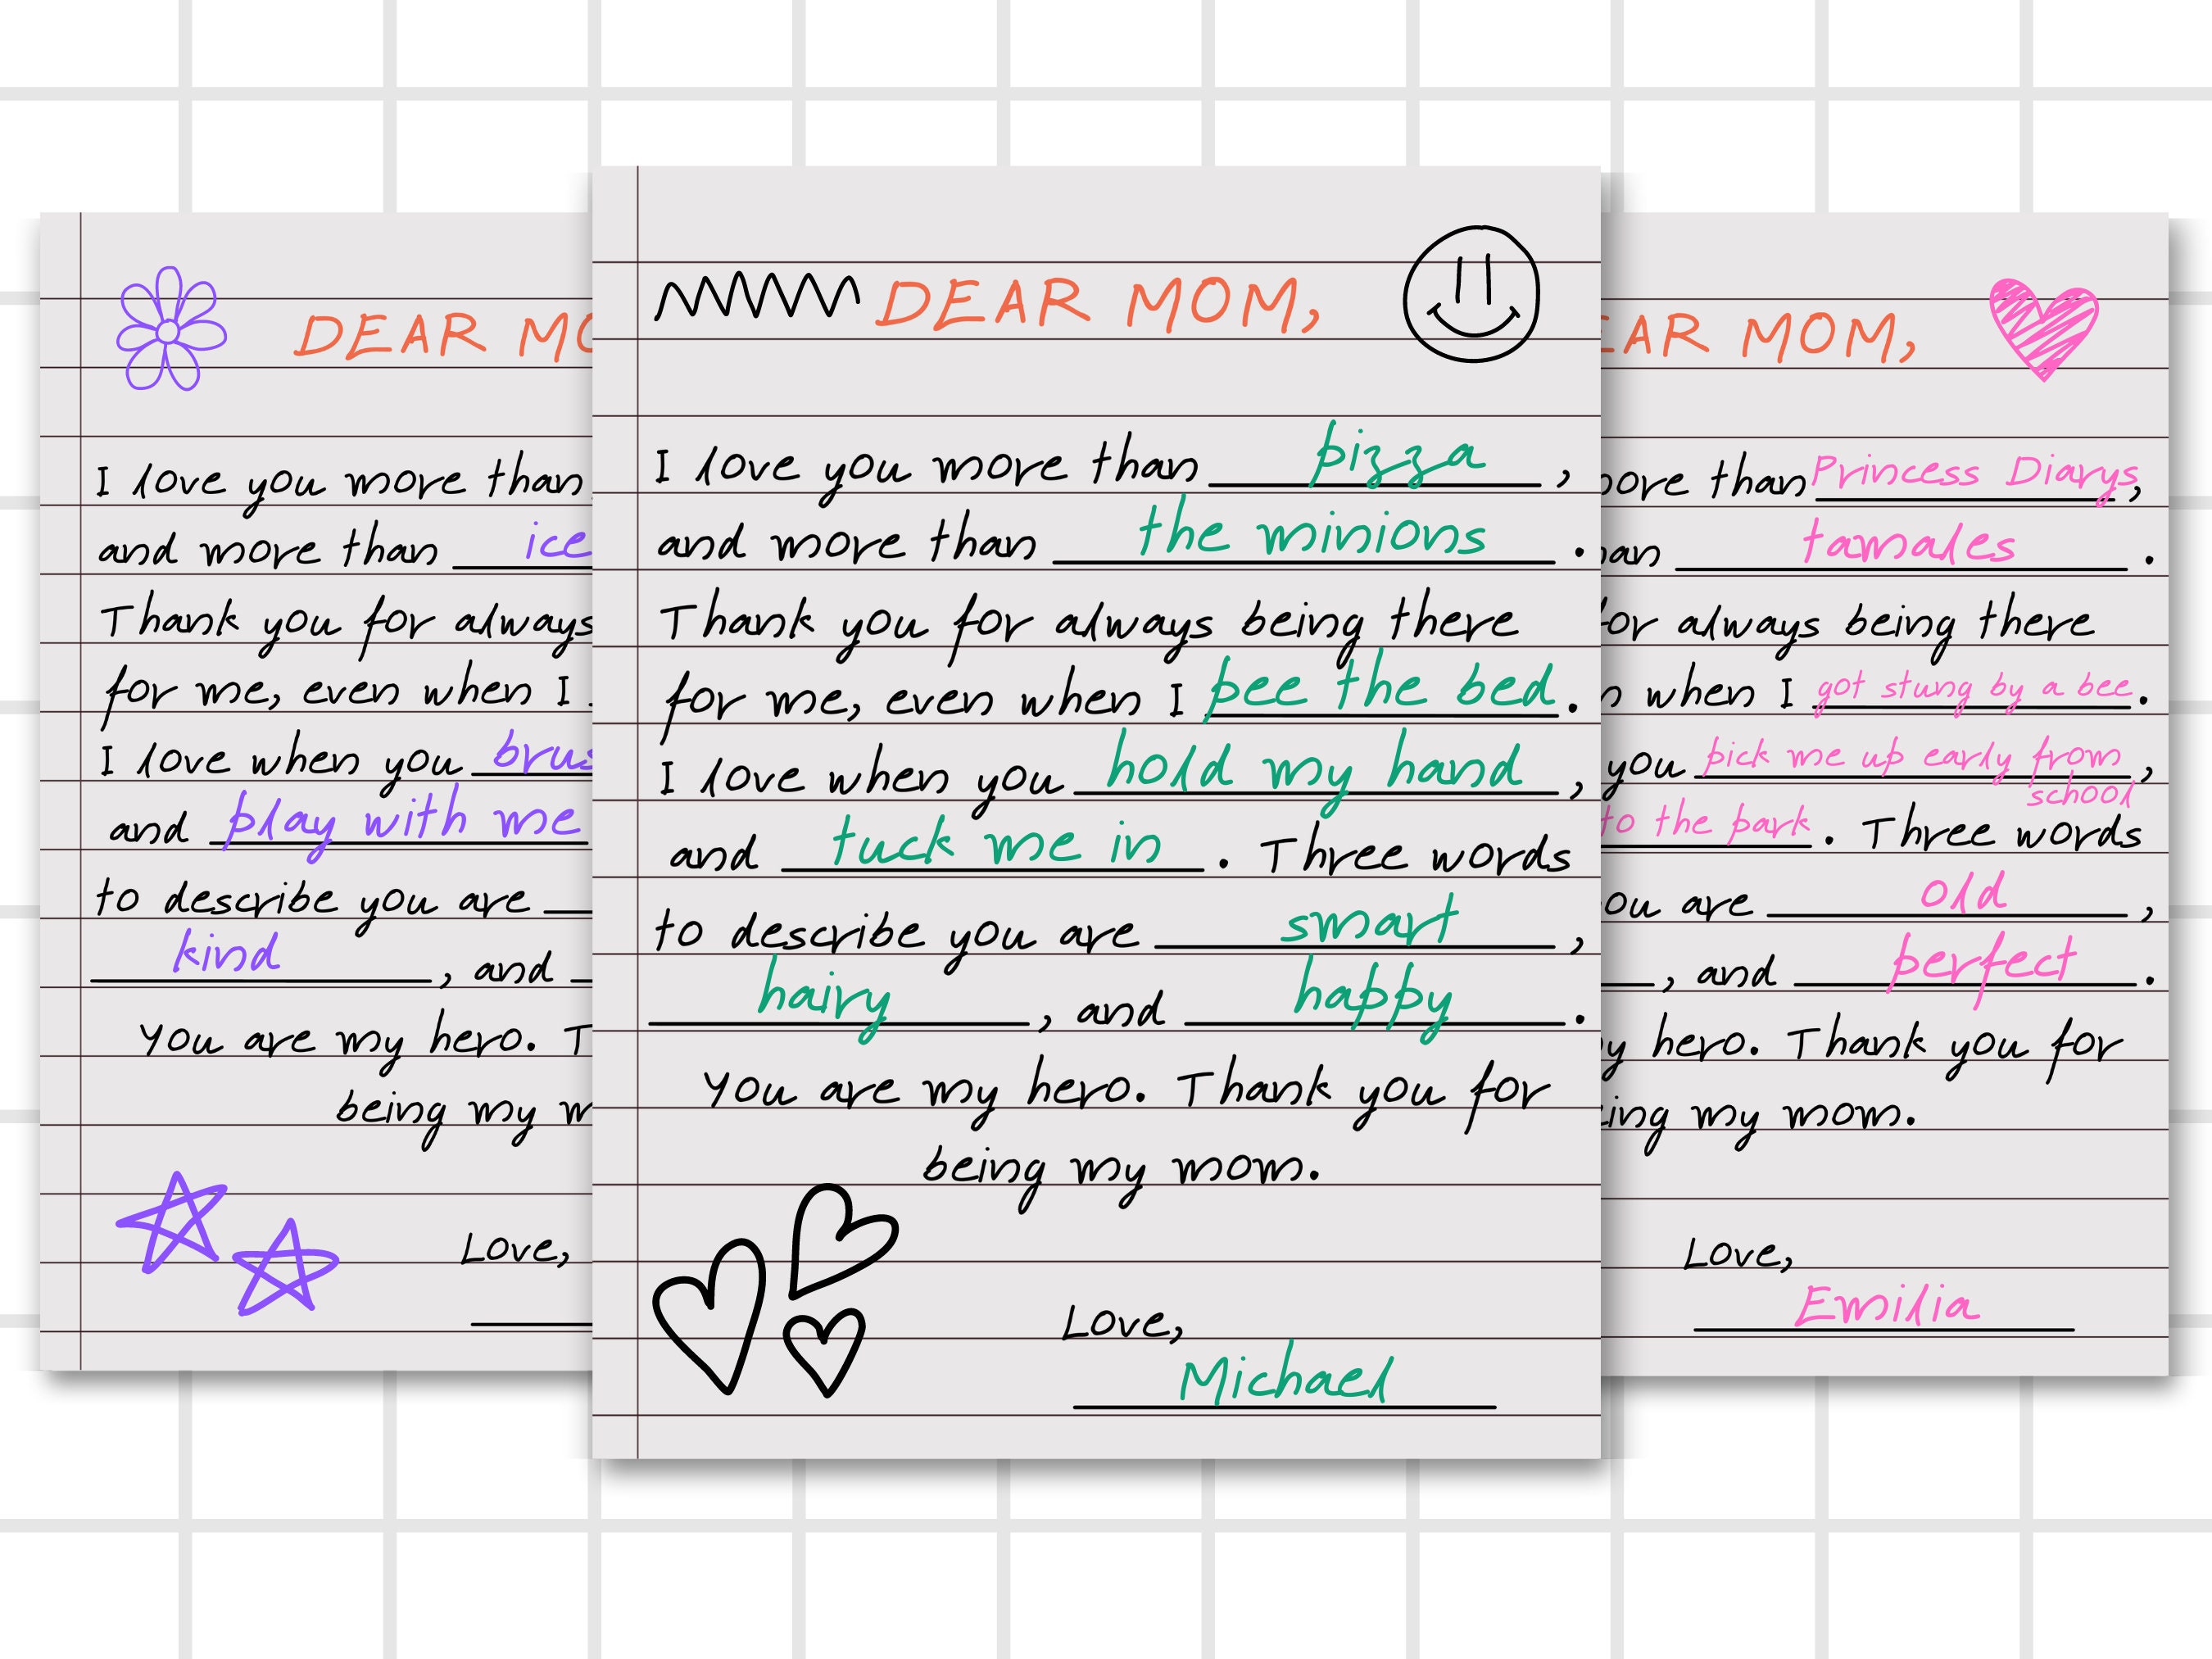 DEAR MO
I love you more than
and more than ice
Thank you for always
for me, even when I
I love when you
and play with me
to describe you are
kind, and
You are my hero.
being my
Love,
DEAR MOM,
I love you more than pizza,
and more than the minions.
Thank you for always being there
for me, even when I pee the bed.
I love when you hold my hand,
and tuck me in. Three words
to describe you are smart,
hairy, and happy.
You are my hero. Thank you for
being my mom.
Love,
Michael
EAR MOM,
ore than Princess Diarys,
an tamales.
for always being there
n when I got stung by a bee.
you pick me up early from school,
to the park. Three words
ou are old,
, and perfect.
y hero. Thank you for
ing my mom.
Love,
Emilia